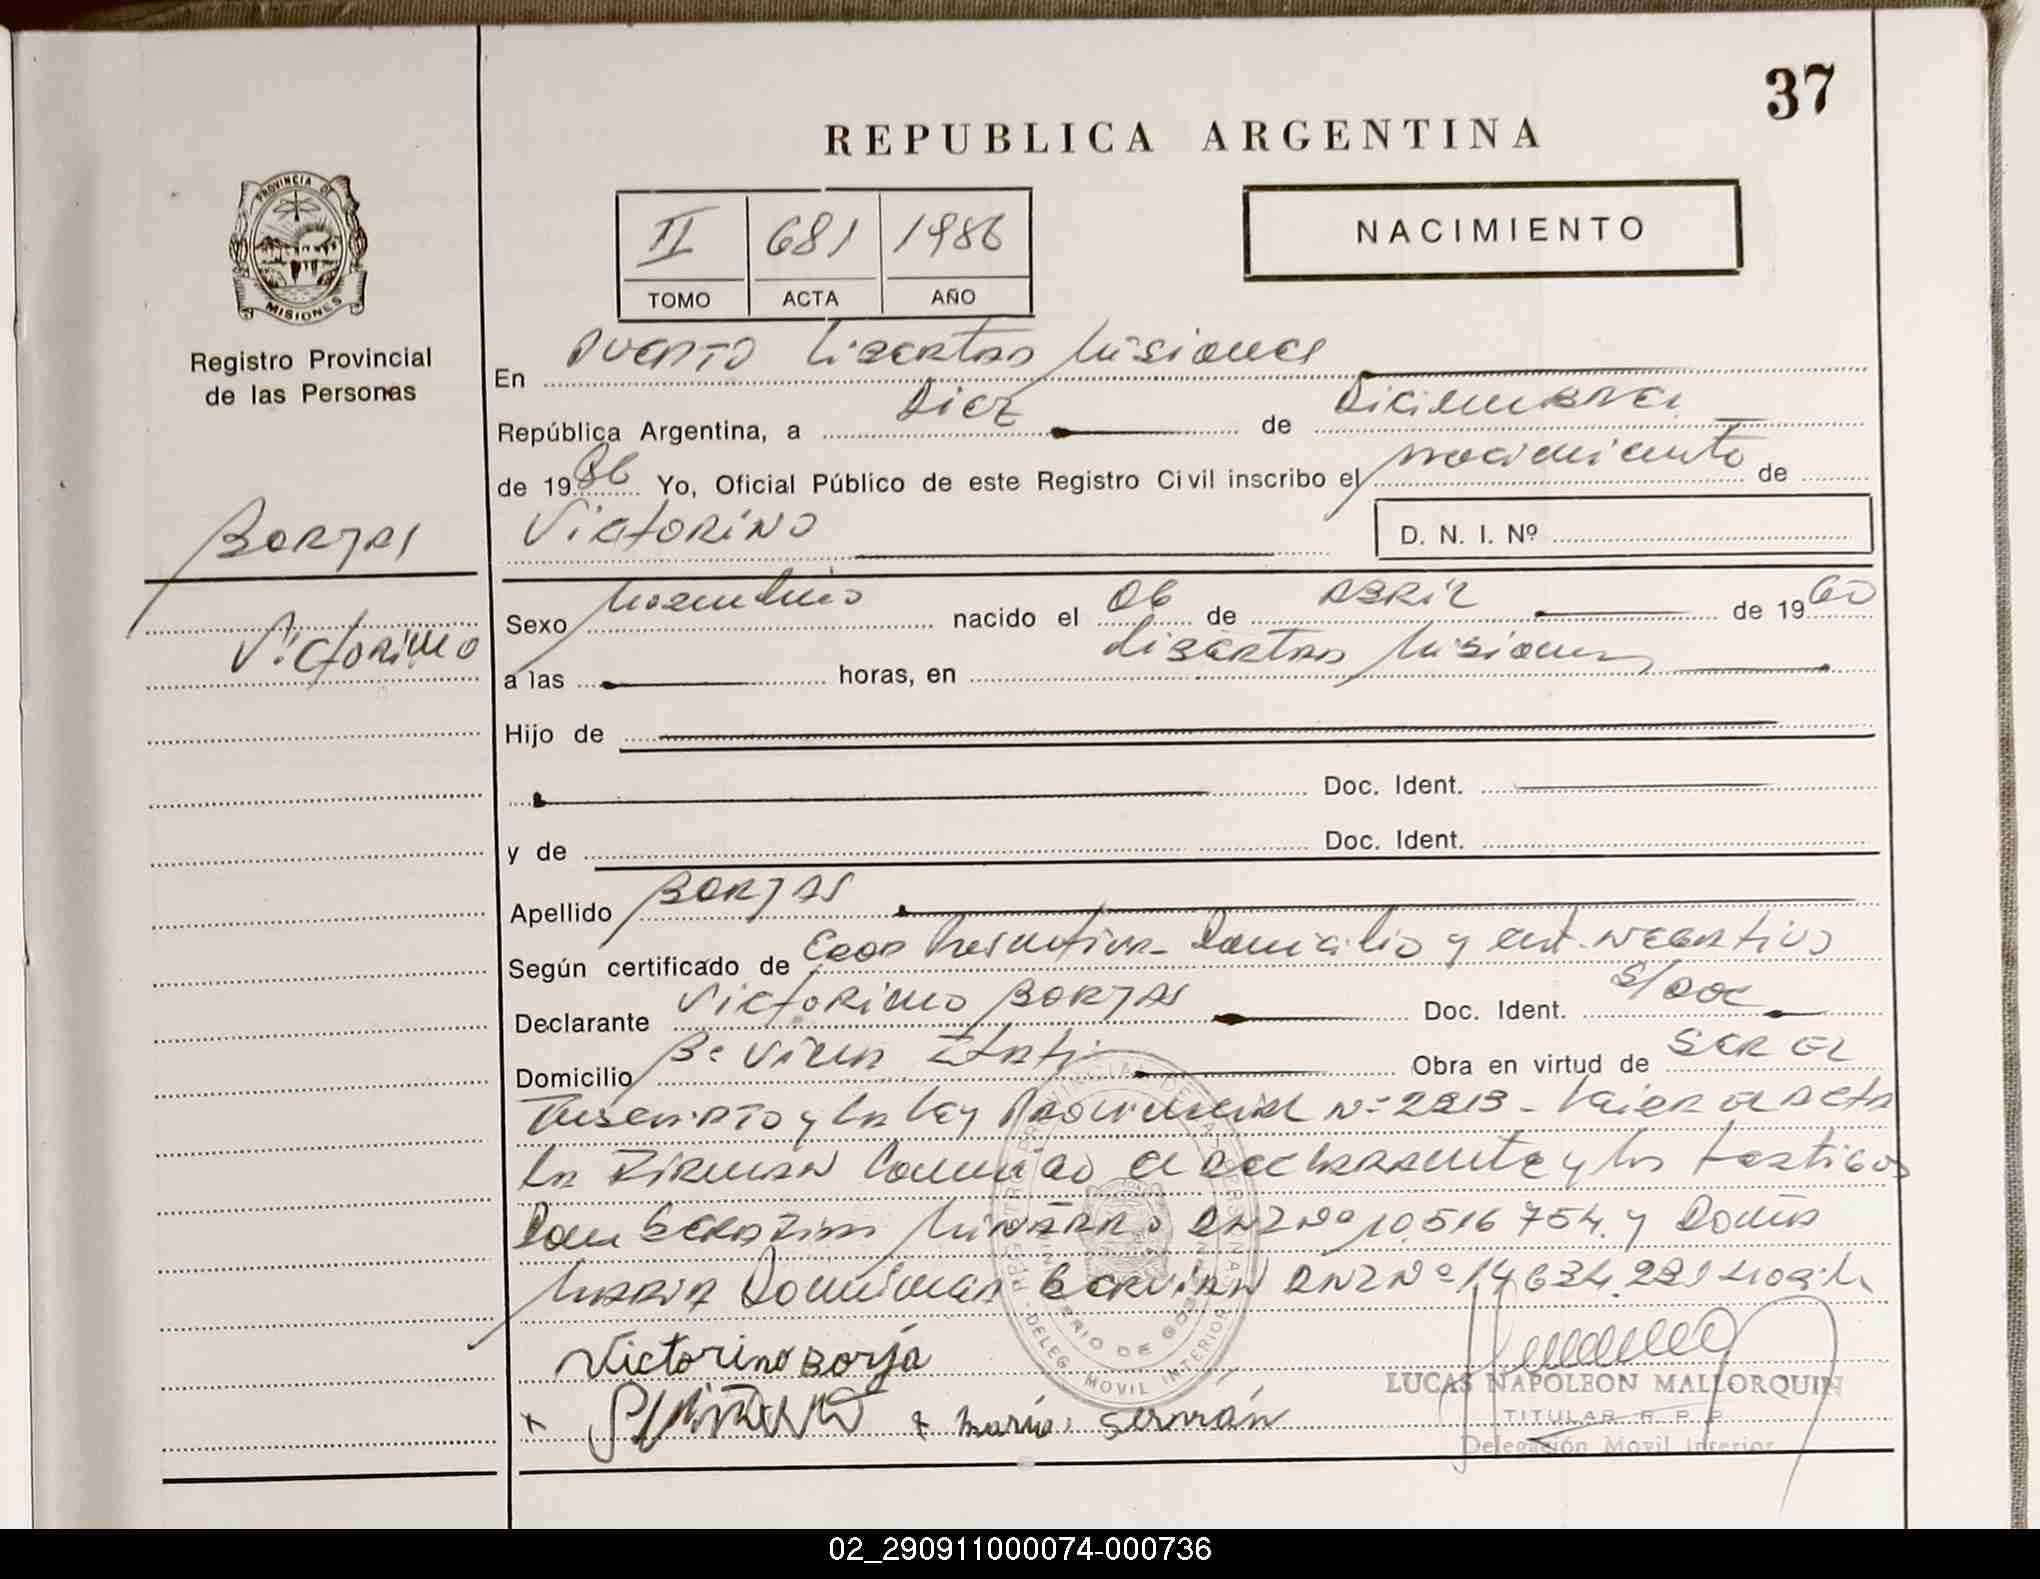 37
REPUBLICA ARGENTINA
PROVINCIA DE
MISIONES
Registro Provincial
de las Personas
II 681 1986
TOMO ACTA AÑO
NACIMIENTO
En Puerto Libertad Misiones
República Argentina, a Diez de Diciembre
de 1986 Yo, Oficial Público de este Registro Civil inscribo el nacimiento de
Victorino
D. N. I. Nº
Borjas
Victorino
Sexo Masculino nacido el 06 de Abril de 1960
a las horas, en Libertad Misiones
Hijo de
Doc. Ident.
y de Doc. Ident.
Apellido Borjas
Según certificado de Edad Presuntiva - Domicilio y cert. negativo
Declarante Victorino Borjas Doc. Ident. S/Doc
Domicilio Bº Villa Itatí Obra en virtud de ser el
Inscripto y la Ley Provincial Nº 2213 - Leida el Acta
la Firman Conmigo el declarante y los testigos
Don Miñarro DNI Nº 10.516.754 y Doña
Maria Servian DNI Nº 14.634.291
Victorino Borja
x x María Servián
LUCAS NAPOLEON MALLORQUIN
TITULAR R. P. P.
Delegación Movil Interior
DELEG MOVIL INTERIOR
02_290911000074-000736